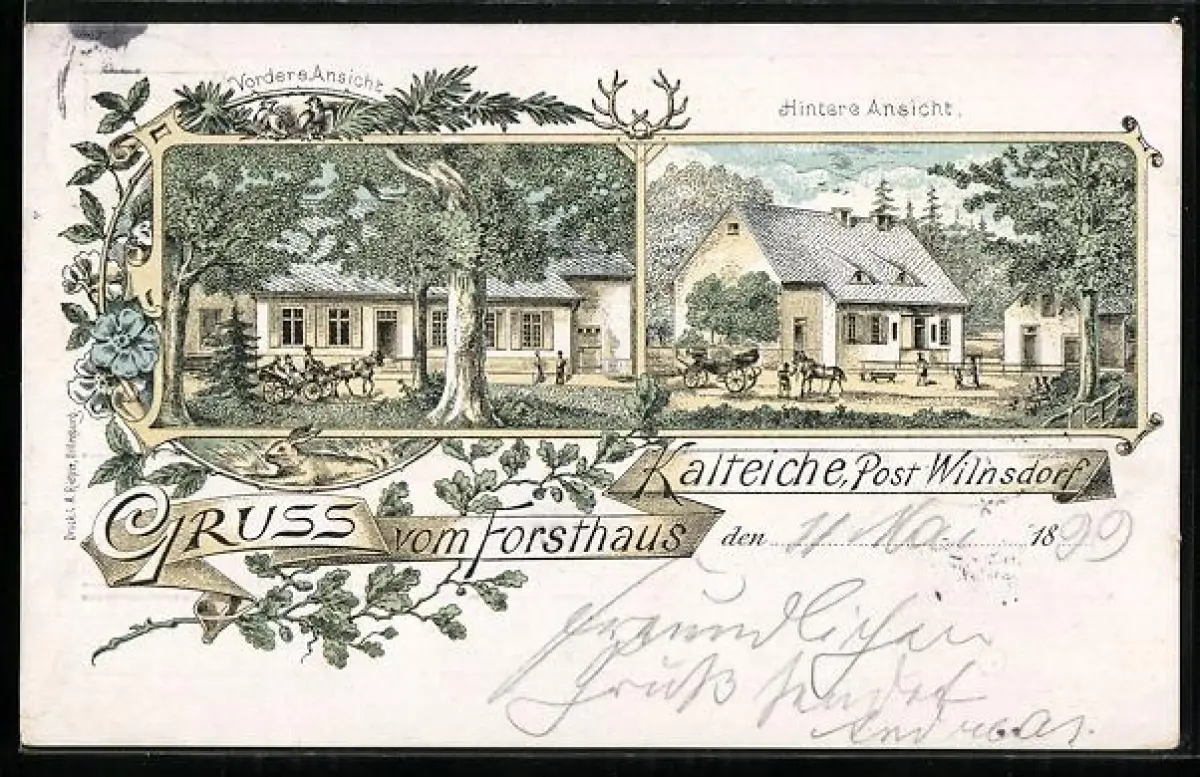 Vordere Ansicht
Hintere Ansicht.
Kalteiche, Post Wilnsdorf
Gruss vom Forsthaus
den 11 Mai 1899
Freundlichen
Gruß sendet
Druck v. A.